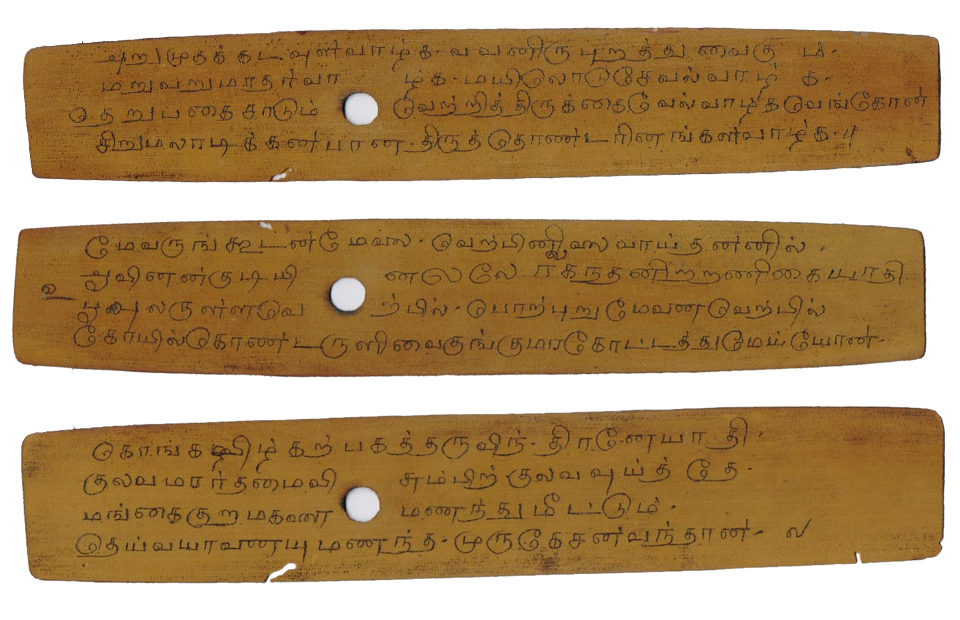 அறுமுகக் கடவுள்வாழ்க. வவனிரு புறத்து வைகு ம்.
மறுவறுமாதர்வாழ்க. மயிலொடுசேவல் வாழ் க.
தெறுபகை சாடும் வெற்றித் திருக்கைவேல்வாழ்க வெங்கோன்
சிறுமலரடிக்கன்பான. திருத்தொண்டரினங்கள்வாழ்க.
மேவருங் கூடன்மேலை. வெற்பினி வாய்தன்னில்.
ஆவினன்குடியி னல்லே ரகந்தனிற்றணிகை யாதி
உ
பூவுலகுள்ளவெ ற்பில். பொற்புறுமேவணவெற்பில்
கோயில்கொண்டருளிவைகுங்குமரகோட்டத்துமேய்யோன்.
கொங்கவிழ்கற்பகத்தருவின். தானேயா தி.
குலவமரர்தமைவி சும்பிற் குலவவுய்த் தே.
மங்கைகுறமகளை மணந்துமீட்டும்.
தெய்வயாவணயுமணந்த. முருகேசன்வந்தான்.